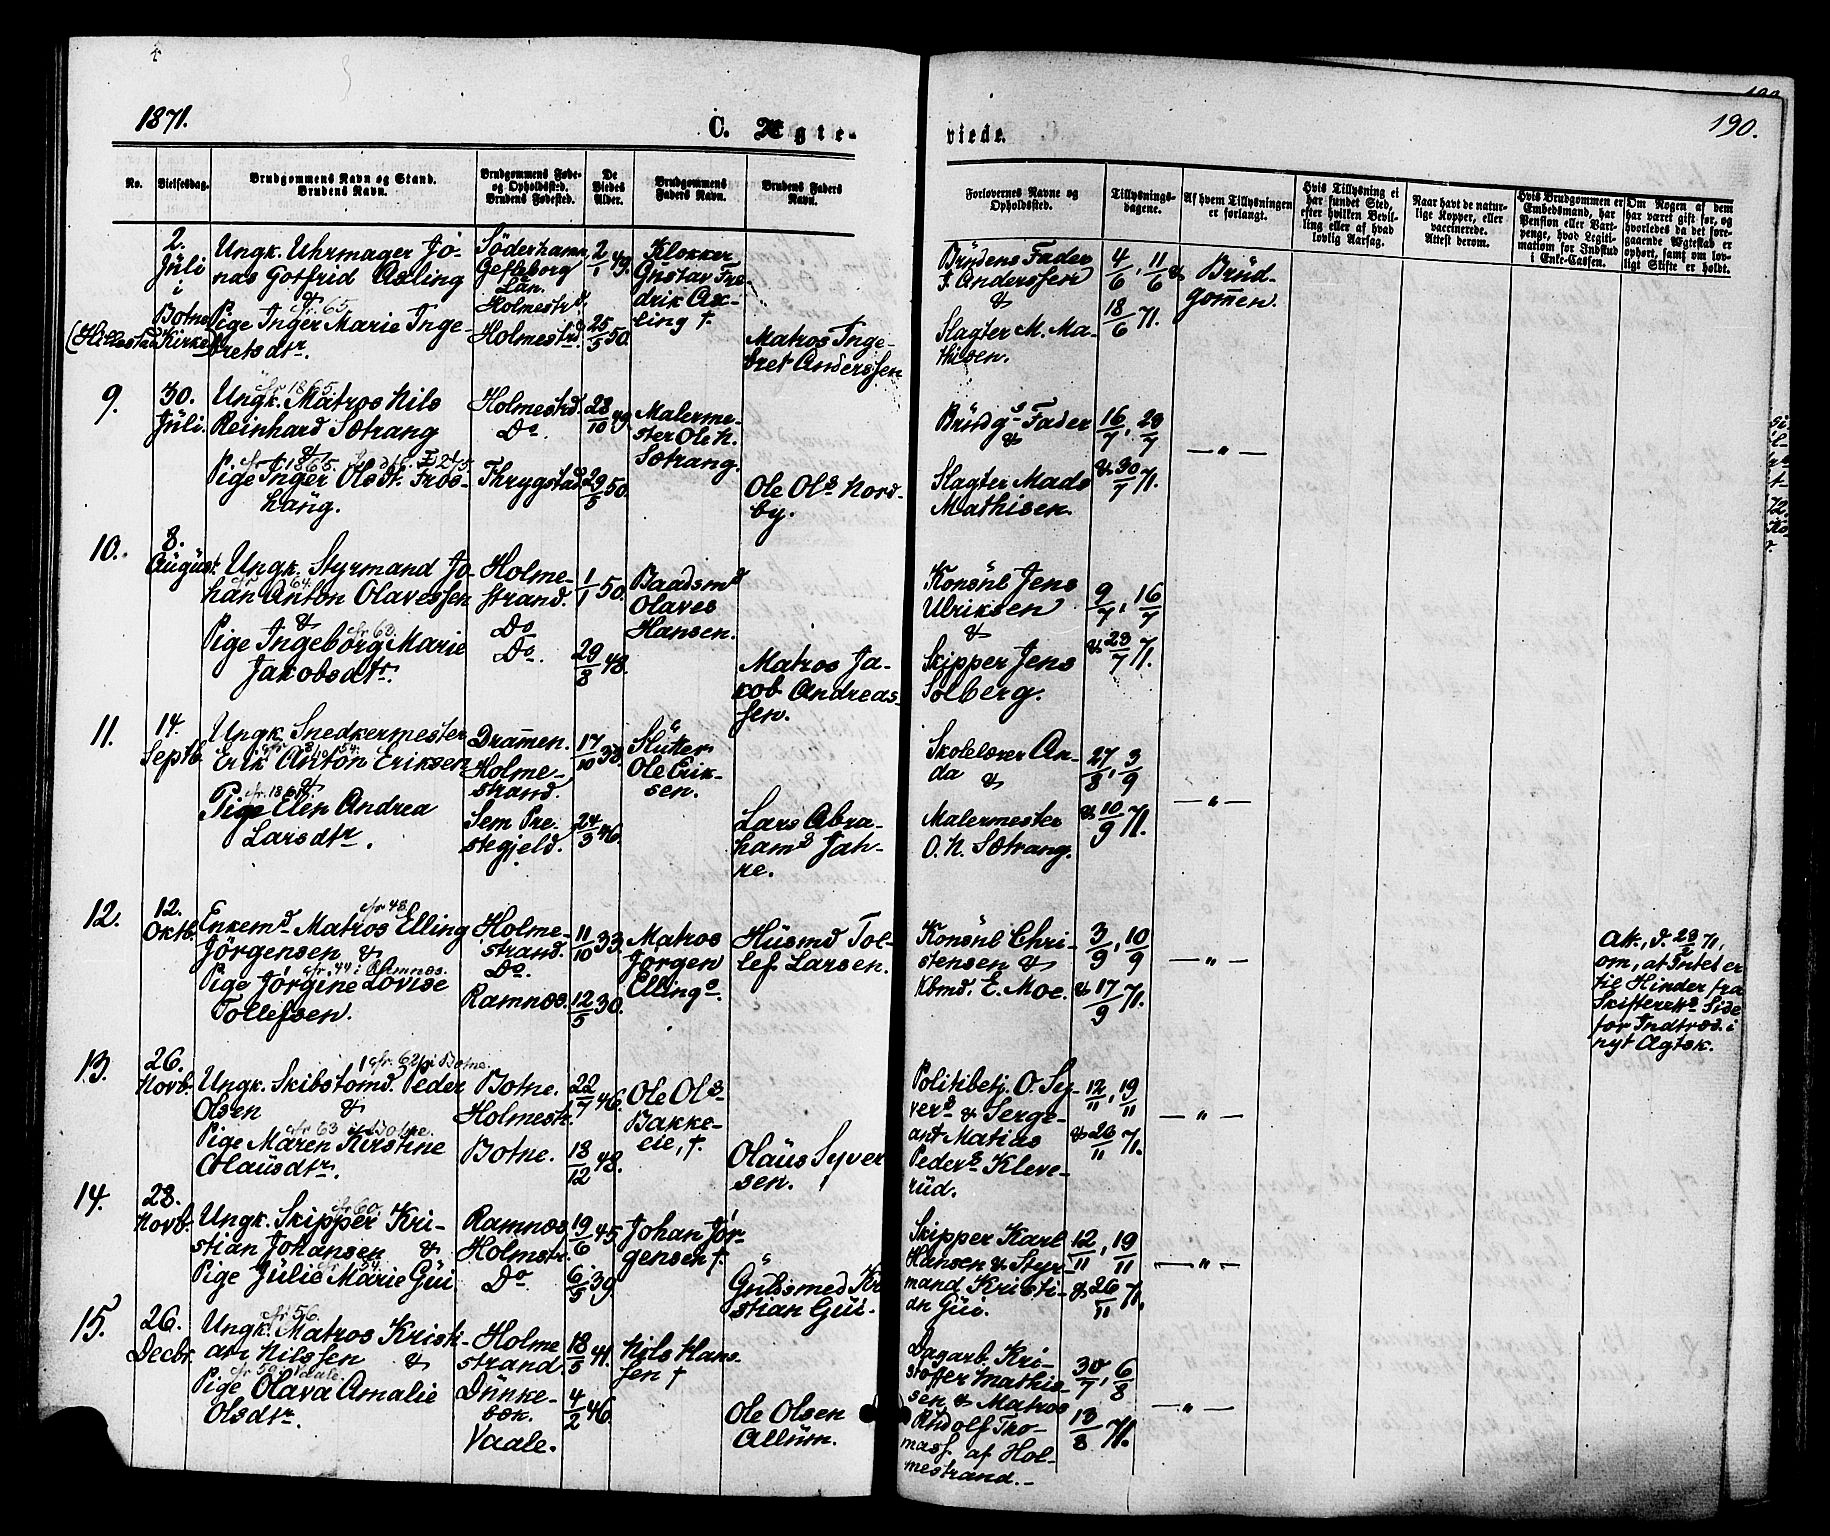 1871.
C. Ægte-
viede.
190.
No.
Vielsesdag.
Brudgommens Navn og Stand.
Brudens Navn.
Brudgommens Føde-
og Opholdssted.
Brudens Fødested.
De
Viedes
Alder.
Brudgommens
Faders Navn.
Brudens Faders
Navn.
Forlovernes Navne og
Opholdssted.
Tillysnings-
dagene.
Af hvem Tillysningen
er forlangt.
Hvis Tillysning ei
har fundet Sted,
efter hvilken Bevil-
ling eller af hvad
lovlig Aarsag.
Naar havt de natur-
lige Kopper, eller
vaccinerede.
Attest derom.
Hvis Brudgommen er
Embedsmand, har
Pension eller Vart-
penge, hvad Legiti-
mation for Indskud
i Enke-Cassen.
Om Nogen af dem
har været gift før, og
hvorledes da det fore-
gaaende Ægteskab er
ophørt, samt om lov-
ligt Skifte er holdt.
2.
Juli
i
Botne
(Hillestad Kirke)
Ungk. Uhrmager Jo-
nas Gotfrid Axling
&
cfr. 65.
Pige Inger Marie Inge-
bretsdtr.
Söderhamn
Gefleborg
Län.
Holmestrd.
Holmestrd.
2/1 49.
25/5 50.
Klokker
Gustav Fre-
drik Ax-
ling †.
Matros Inge-
bret Anderssen
Brudens Fader
I. Anderssen
&
Slagter M. Ma-
thisen.
4/6, 11/6 &
18/6 71.
Brud-
gommen.
9.
30.
Juli.
cfr 1865.
Ungk. Matros Nils
Reinhard Sætrang
&
cfr. 1865.
Pige Inger Olsdt. Fros-
haug.
Holmestrd.
Do.
Thrygstad
28/10 49.
29/5 50.
Malerme-
ster Ole N.
Sætrang.
Ole Ols. Nord-
by.
Brudgs Fader
&
Slagter Mads
Mathisen.
16/7, 23/7
& 30/7 71.
— „ —
10.
8.
August.
Ungk. Styrmand Jo-
cfr 64.
han Anton Olavessen
&
cfr 63.
Pige Ingeborg Marie
Jakobsdtr.
Holme-
strand.
Do
Do.
1/1 50.
29/8 48.
Baadsmd
Olaves
Hansen.
Matros Ja-
kob Andreas-
sen.
Konsul Jens
Ulriksen
&
Skipper Jens
Solberg.
9/7, 16/7
& 23/7 71.
11.
14.
Septb.
Ungk. Snedkermester
Erik Anton Eriksen
&
cfr. 1861.
Pige Elen Andrea
Larsdtr.
Drammen.
Holme-
strand.
Sem Pre-
stegjeld.
17/10 38.
24/3 46.
Slutter
Ole Erik-
sen.
Lars Abra-
hams Jah-
re.
Skolelærer An-
da &
Malermester
O. N. Sætrang.
27/8, 3/9
& 10/9 71.
— „ —
12.
12.
Oktb.
cfr 48.
Enkemd Matros Elling
Jörgensen &
cfr. 44 i Ramnæs.
Pige Jörgine Lovise
Tollefsen.
Holme-
strand.
Do.
Ramnæs.
11/10 33.
12/5 30.
Matros
Jörgen
Ellings.
Husmd Tol-
lef Larsen.
Konsul Chri-
stensen &
Kbmd. E. Moe.
3/9, 10/9
& 17/9 71.
— „ —
Att., d. 23/9 71,
om, at Intet er
til Hinder fra
Skifterets Side
for Indtræd. i
nyt Ægtsk.
13.
26.
Novb.
cfr. 62 i Botne.
Ungk. Skibstömd. Peder
Olsen &
cfr 63 i Botne.
Pige Maren Kirstine
Olausdtr.
Botne.
Holmestr.
Botne.
22/7 46.
18/12 48.
Ole Ols.
Bakke-
eie, †.
Olaus Syver
sen.
Politibetj. O. Sy-
vers & Serge-
ant Matias
Peders Kleve-
rud.
12/11, 19/11
& 26/11 71.
— „ —
14.
28.
Novb.
cfr 60.
Ungk. Skipper Kri-
stian Johansen &
cfr 54.
Pige Julie Marie Gui
Ramnæs
Holmstr.
Do
19/6 45
6/5 39.
Johan Jör-
gensen †.
Guldsmed Kr
stian Gui.
Skipper Karl
Hansen & Styr-
mand Kristi-
an Gui.
12/11, 19/11
& 26/11 71.
— „ —
15.
26.
Decbr.
cfr 56.
Ungk. Matros Kristi-
an Nilssen &
cfr 59 i Vaale.
Pige Olava Amalie
Olsdtr.
Holme
strand.
Dunke-
bæk.
Vaale.
18/5 41.
4/2 46.
Nils Hans-
sen †
Ole Olsen
Allum.
Dagarb. Kri-
stoffer Mathis-
sen & Matros
Rudolf Tho-
mass. af Hol-
mestrand.
30/7, 6/8
13/8 71.
— „ —